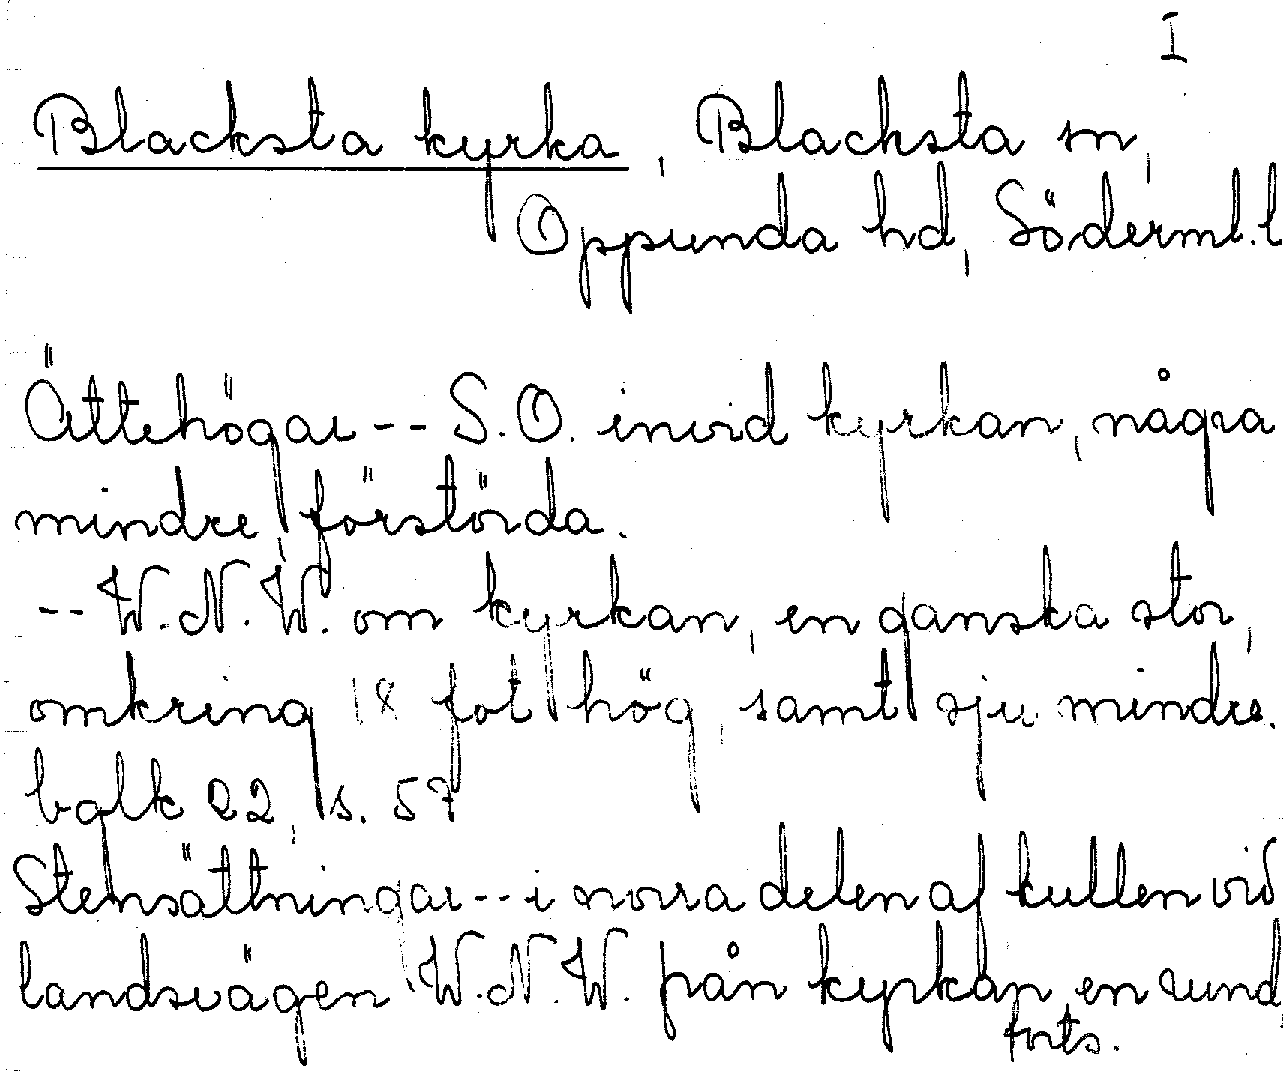 I
Blacksta kyrka, Blacksta sn,
Oppunda hd, Söderml. l
Ättehögar -- S.O. invid kyrkan, några
mindre förstörda.
-- W.N.W. om kyrkan, en ganska stor,
omkring 18 fot hög, samt sju mindre.
balk 22, s. 57
Stensättningar -- i norra delen af kullen vid
landsvägen W.N.W. från kyrkan en rund,
forts.